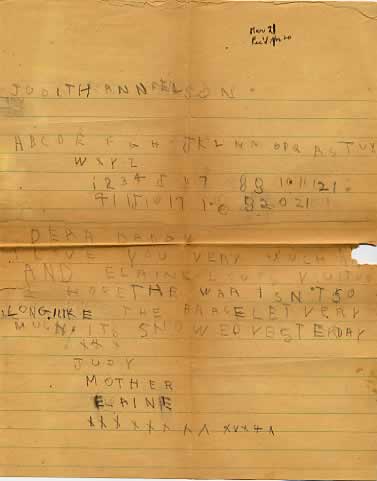 Mar 21
Rec'd Apr 20
JUDITH ANN NELSON
ABCDE F G H JKL MN OPQ RSTUV
WXYZ
1234 5 7 89 10 11 121
41 15 17 1 820 21
DERA DADDY
I LOVE YOU VERY MUCH
AND ELAINE
I HOPE THE WAR ISN'T SO
LONG. I LIKE THE BRACELET VERY
MUCH. IT SNOWED YESTERDAY
XXX
JUDY
MOTHER
ELAINE
XXX XXX XX XXXXX